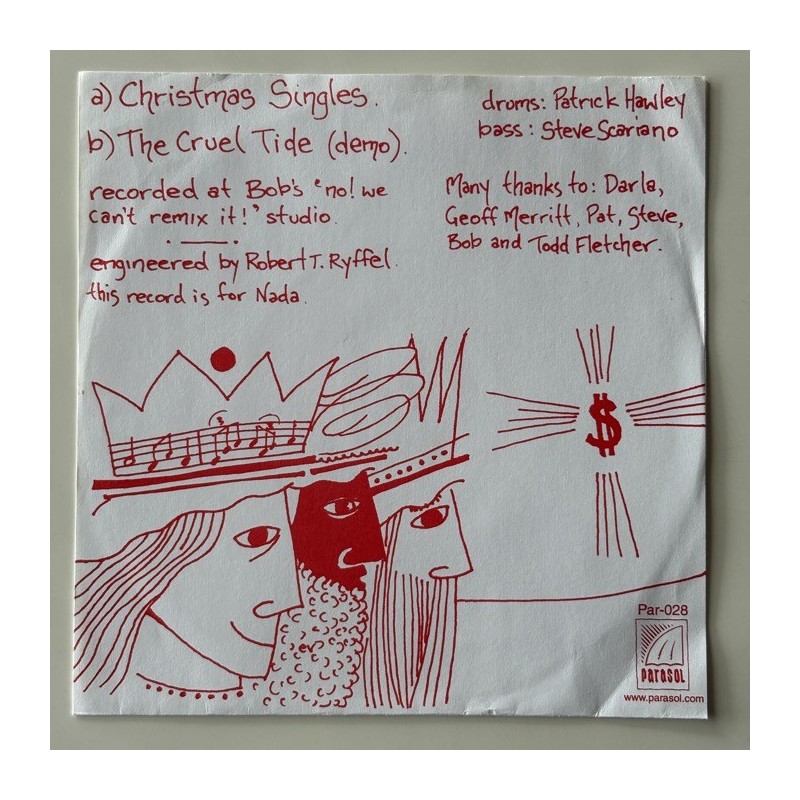 a) Christmas Singles.
b) The Cruel Tide (demo).
recorded at Bob's 'no! we
can't remix it!' studio.
engineered by Robert T. Ryffel.
this record is for Nada.
drums: Patrick Hawley
bass: Steve Scariano
Many thanks to: Darla,
Geoff Merritt, Pat, Steve,
Bob and Todd Fletcher.
$
Par-028
parasol
www.parasol.com